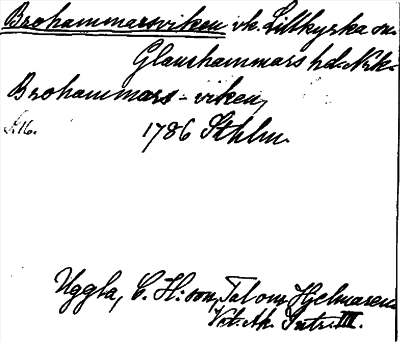 Brohammarsviken vk. Lillkyrka sn.
Glanshammars hd. Nrk.
Brohammars-viken,
1786 Sthlm.
Uggla, C. H:son, Tal om Hjelmaren
Vet. Ak. Intr. III.